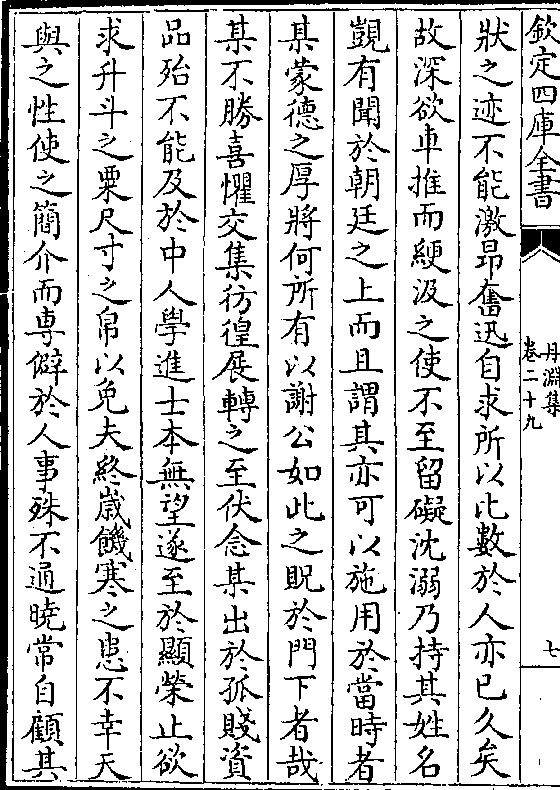 欽定四庫全書
丹淵集
卷二十九
七
狀之迹不能激昻奮迅自求所以比數於人亦已久矣
故深欲車推而綆汲之使不至留礙沈溺乃持其姓名
覬有聞於朝廷之上而且謂其亦可以施用於當時者
某蒙德之厚將何所有以謝公如此之貺於門下者哉
某不勝喜懼交集彷徨展轉之至伏念某出於孤賤資
品殆不能及於中人學進士本無望遂至於顯榮止欲
求升斗之粟尺寸之帛以免夫終歲饑寒之患不幸天
與之性使之簡介而専僻於人事殊不通曉常自顧其